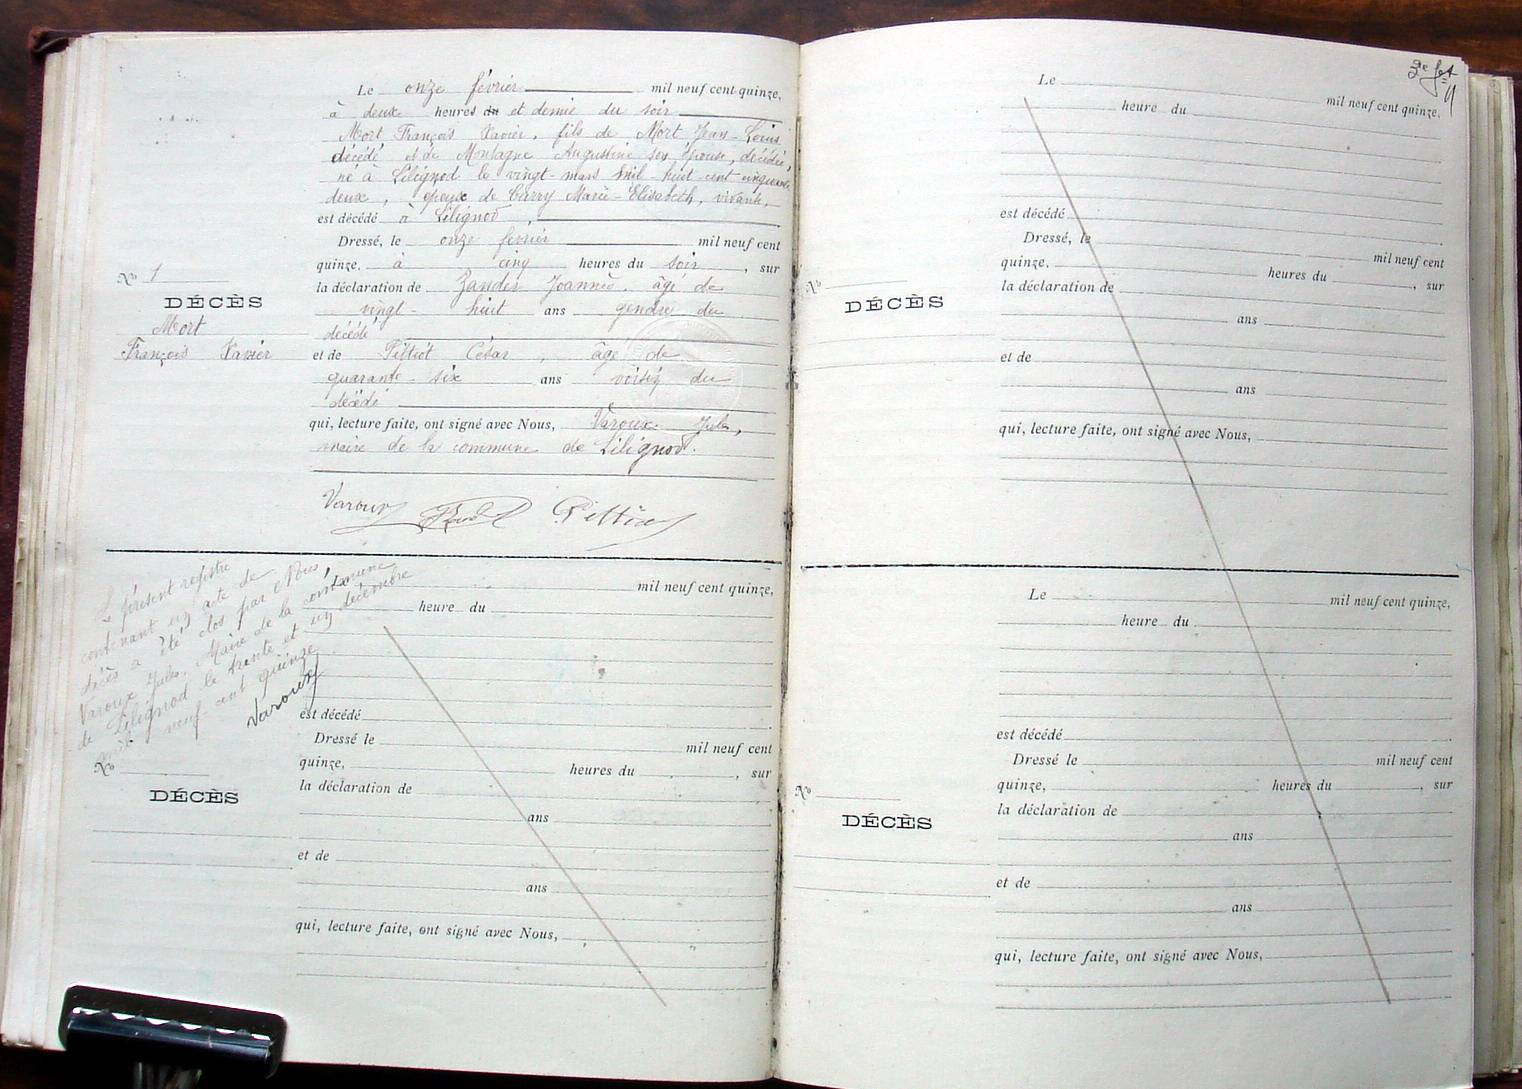 Le onze février mil neuf cent quinze,
à deux heures du et demie du soir
Mort François Xavier, fils de Mort Jean-Louis
décédé et de Montagne Augustine son épouse, décédée,
né à Lilignod le vingt mars mil-huit-cent cinquante
deux, époux de Carry Marie-Elisabeth, vivante,
est décédé à Lilignod,
Dressé, le onze février mil neuf cent
quinze, à cinq heures du soir, sur
la déclaration de Joannès, âgé de
vingt-huit ans gendre du
décédé
et de César, âgé de
quarante-six ans voisin du
décédé
qui, lecture faite, ont signé avec Nous, Varoux Jules,
maire de la commune de Lilignod.
Varoux
No 1
DÉCÈS
Mort
François Xavier
Le présent registre
contenant un acte de
décès a été clos par Nous,
Varoux Jules, Maire de la commune
de Lilignod le trente et un décembre
mil neuf-cent quinze
Varoux
Le mil neuf cent quinze,
heure du
est décédé
Dressé le mil neuf cent
quinze, heures du , sur
la déclaration de
ans
et de
ans
qui, lecture faite, ont signé avec Nous,
No
DÉCÈS
Le mil neuf cent quinze,
heure du
est décédé
Dressé, le mil neuf cent
quinze, heures du , sur
la déclaration de
ans
et de
ans
qui, lecture faite, ont signé avec Nous,
No
DÉCÈS
Le mil neuf cent quinze,
heure du
est décédé
Dressé le mil neuf cent
quinze, heures du , sur
la déclaration de
ans
et de
ans
qui, lecture faite, ont signé avec Nous,
No
DÉCÈS